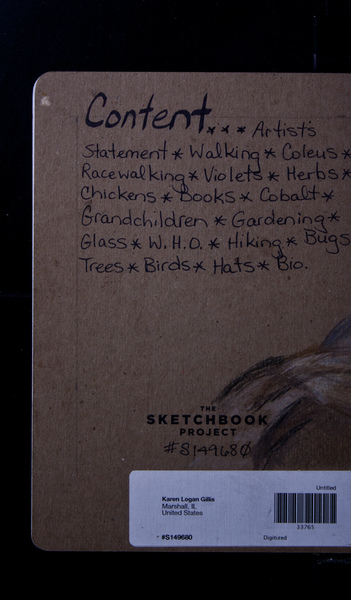 Content... * * * Artist's
Statement * Walking * Coleus *
Racewalking * Violets * Herbs *
Chickens * Books * Cobalt *
Grandchildren * Gardening *
Glass * W.H.O. * Hiking * Bugs
Trees * Birds * Hats * Bio.
THE
SKETCHBOOK
PROJECT
#S149680
Untitled
Karen Logan Gillis
Marshall, IL
United States
33765
#S149680
Digitized